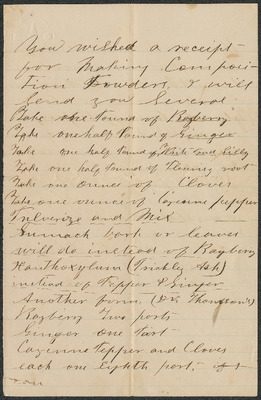 You wished a receipt
for Making Composi-
tion Powders, I will
Send you Several
Take one Pound of Bayberry
Take one half Pound of Ginger
Take one half Pound of White Pond Lilly
Take one half Pound of Fleurisy root
Take one ounce of Cloves
Take one ounce of Cayenne Pepper
Pulverize and Mix
Sumach bark or leaves
will do instead of Bayberry
Xanthoxylum (Prickly Ash)
instead of Pepper & Ginger
Another form (Dr. Thompson's)
Bayberry Two parts
Ginger one Part
Cayenne Pepper and Cloves
each one eighth part.